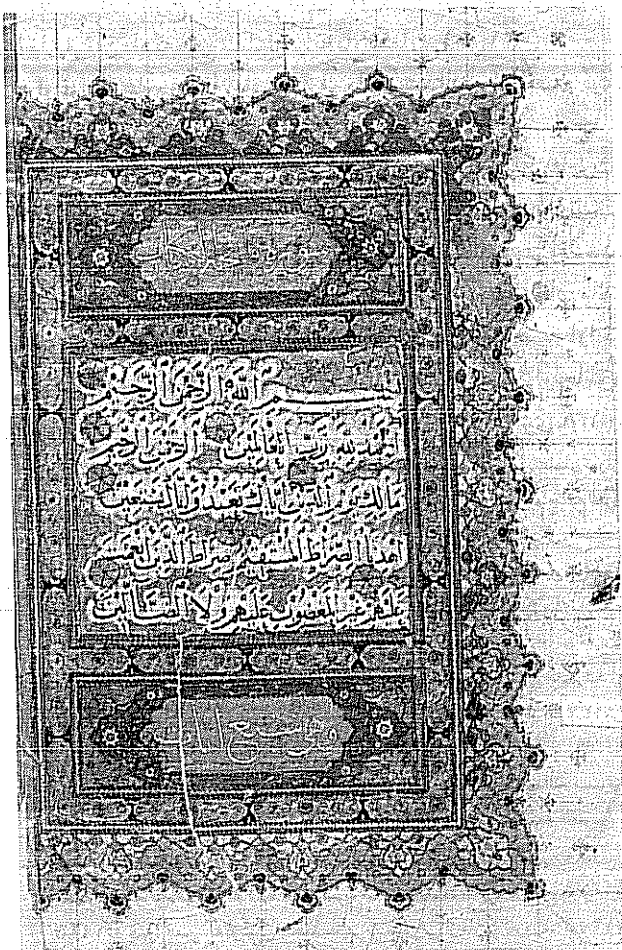 سورة فاتحة الكتاب
بسم الله الرحمن الرحيم
الحمد لله رب العالمين الرحمن الرحيم
مالك يوم الدين إياك نعبد وإياك نستعين
اهدنا الصراط المستقيم صراط الذين أنعمت
عليهم غير المغضوب عليهم ولا الضالين
وهي سبع آيات